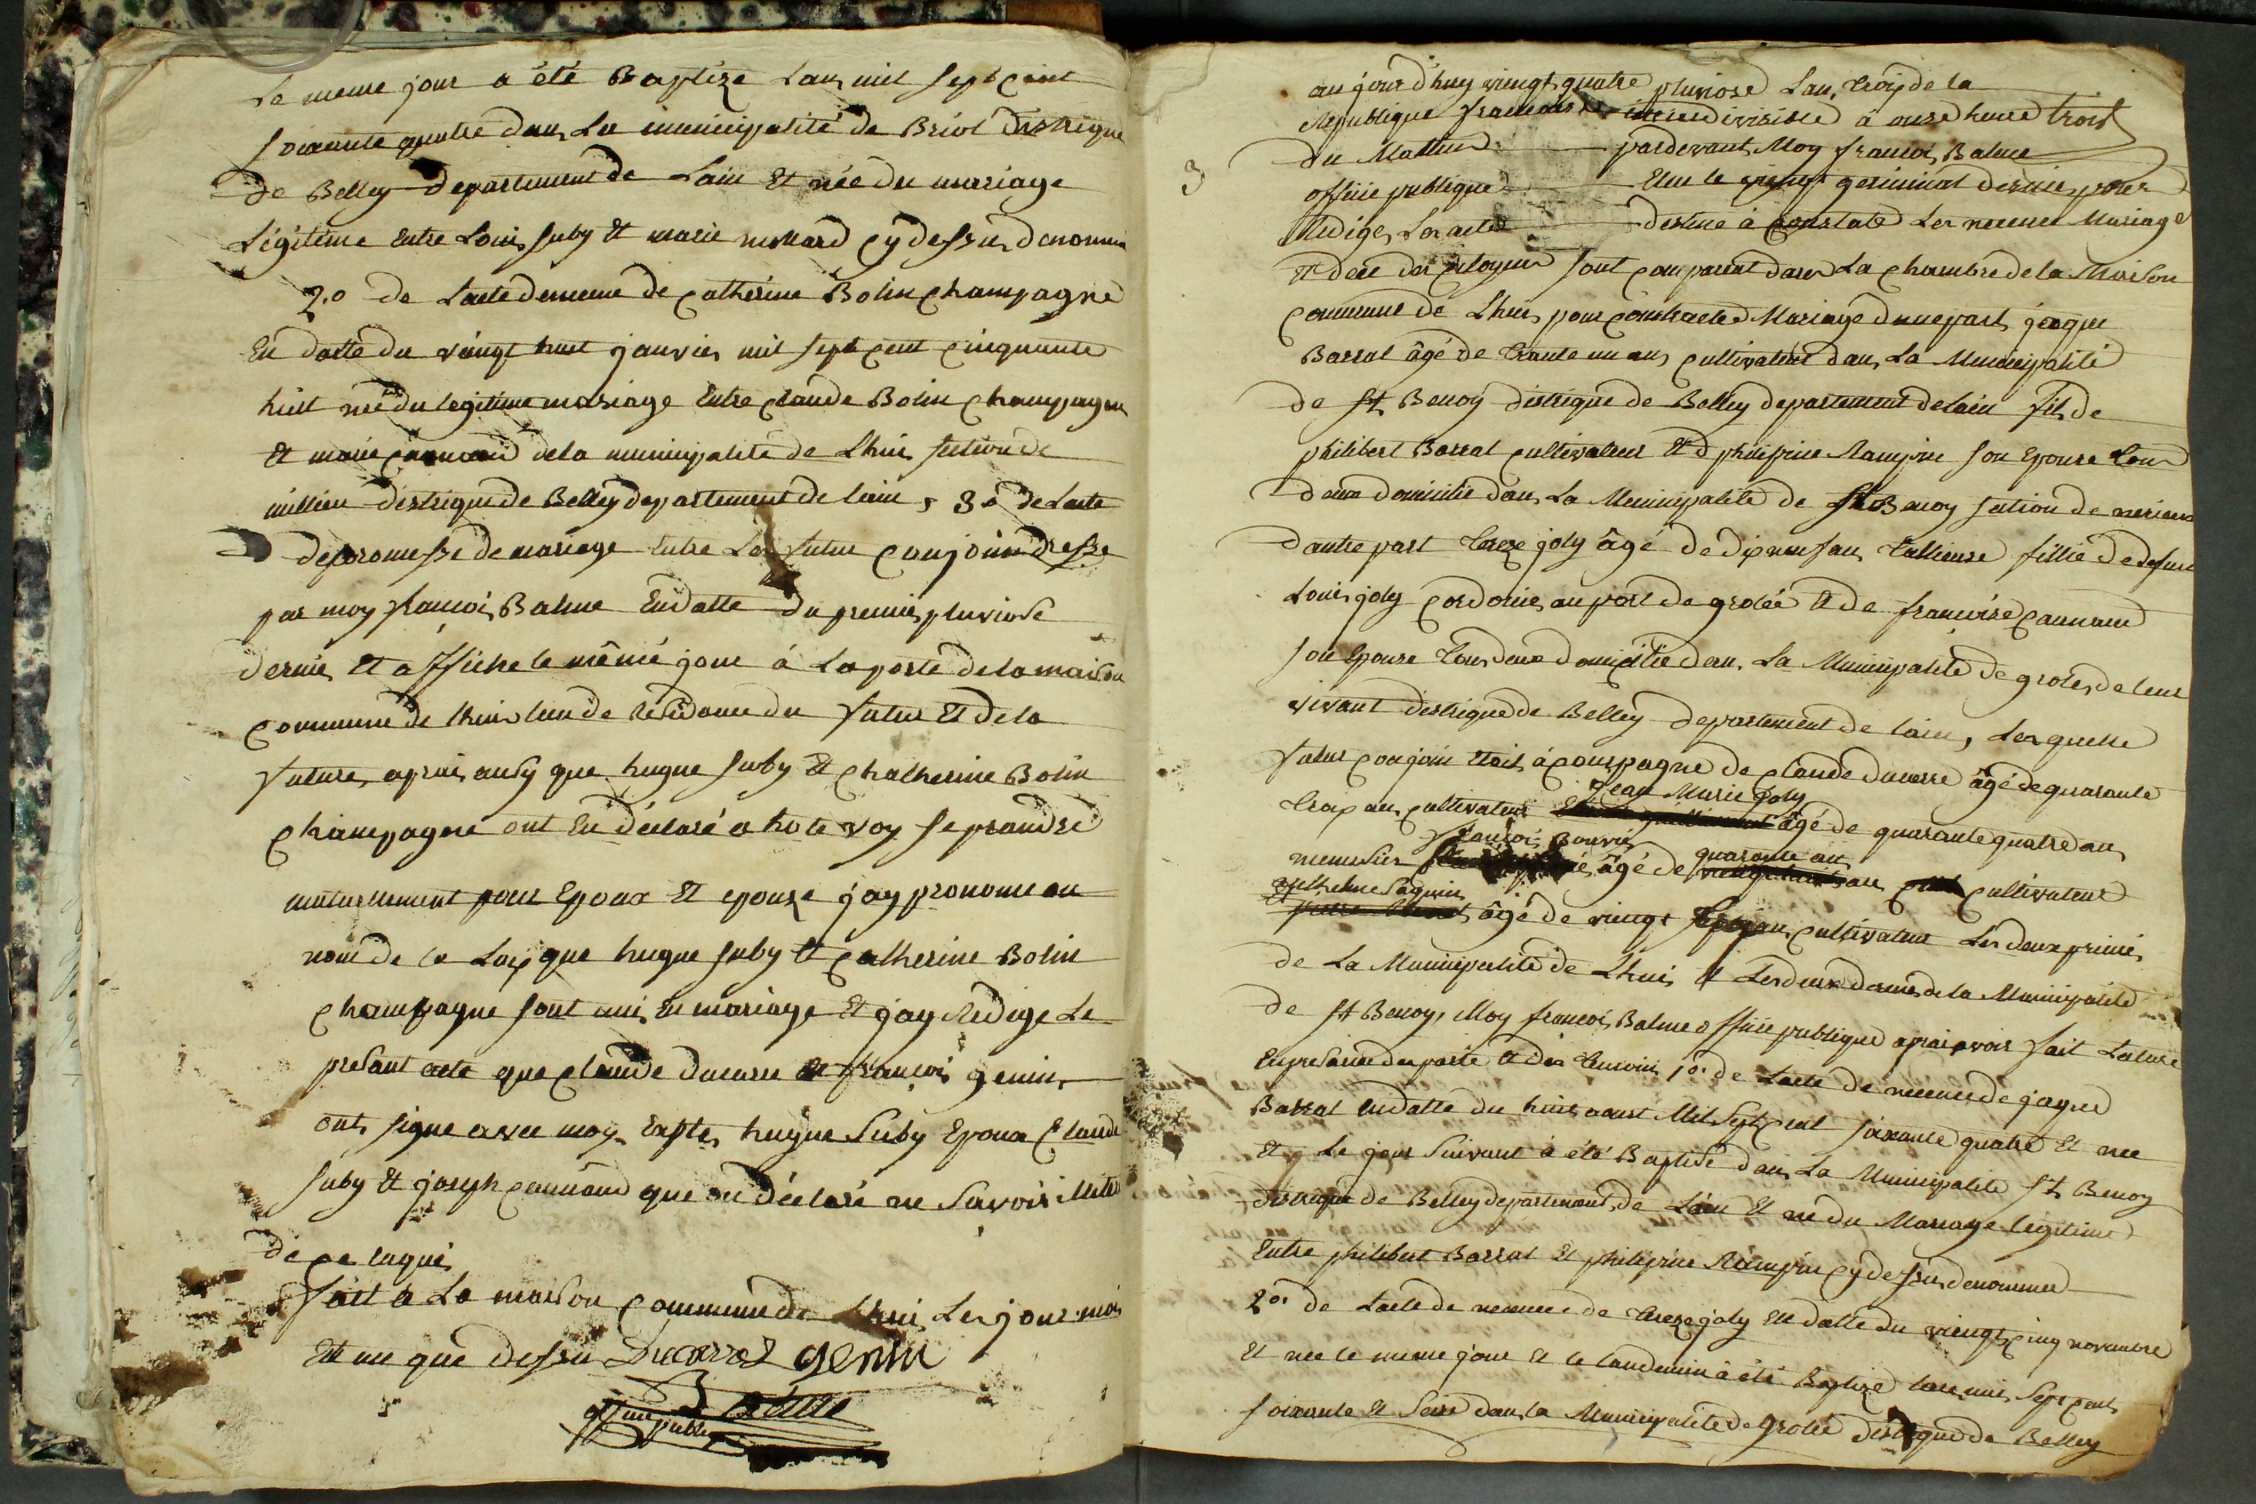 Le meme jour a été Baptize Lan mil sept cent
soixante quatre dans La municipalité de Briot distrique
de Belley departement de Lain Et née du mariage
Légitime Entre Louis suby Et marie cy dessus denommé
2.o de Lacte de de Catherine Bolin Champagne
En datte du vingt huit janvier mil sept cent cinquante
huit née du legitime mariage Entre Claude Bolin Champagne
Et marie de la municipalité de Lhuis section de
millieu distrique de Belley departement de lain , 3o de Lacte
de promesse de mariage Entre Les futur conjoin dressé
par moy françoi Balme En datte du premier pluviose
dernier Et affiché le même jour à La porte de la maison
commune de Lhuis lieu de Residance du futur Et de la
future, aprais ausy que hugue suby Et Chatherine Bolin
Champagne ont En déclaré a hote voy se prandre
mutuellement pour Epoux Et epouse j'ay prononcé au
nom de la Loy que hugue suby Et Catherine Bolin
Champagne sont uni En mariage Et j'ay Redigé Le
présant acte que Claude ducarre Et françoi genin
ont signé avec moy Exsté hugue Suby Epoux Claude
suby Et joseph cannaud que on déclaré ne Savoir
de ce
fait à La maison commune de Lhuis Les jour moi
Et an que dessu Ducarre genin
Balme
officié publiq
3
aujourd'huy vingt quatre pluviose Lan troy de la
Republique française indivisible à onze heure trois
du Mattin pardevant Moy françoi Balme
officié publique Elue le vingt germinal dernier pour
Rédiger Les actes destiné à constaté Les necence Mariage
Et decé des citoyens sont comparut dans La chambre de la Maison
commune de Lhuis pour contracté Mariage d'une part jacque
Barrat âgé de trante un an cultivateur dans La Municipalité
de St Benoy distrique de Belley departement de lain fils de
philibert Barrat cultivateur Et d philipine Rampin son Epouse tous
deux domicilié dans La Municipalité de St Benoy section de
d'autre part tereze joly âgé de dix neuf an tallieuse fillie de defunt
Louis joly cordonier au port de grolée Et de françoise cannaud
son Epouse tous deux domicilié dans La Municipalité de grolée de leur
vivant distrique de Belley departement de lain, Lesquelle
futur conjoin Etait acompagné de Claude ducarre âgé de quarante
troy an cultivateur Jean Marie Joly âgé de quarante quatre an
menusier françoi Bouvié âgé de quarante an cultivateur
Et anthelme Saguin âgé de vingt sept an cultivateur Les deux prémié
de La Municipalité de Lhuis Et Les deux dernié de la Municipalité
de St Benoy, Moy françoi Balme officié publique aprai avoir fait Lecture
En presance des partie Et des temoins 1o. de Lacte de necence de jaque
Barrat En datte du huit aoust Mil Sept Cent soixante quatre Et née
Et Le jour Suivant à été Baptisé dans La Municipalité St Benoy
distrique de Belley departement de Lain Et né du Mariage legitime
Entre philibert Barrat Et philipine Rampin cy dessu denommé
2o. de Lacte de necence de tereze joly En datte du vingt cinq novambre
Et née le meme jour Et le landemin à été Baptizé lan mil sept cent
soixante Et Seize dans la Municipalité de Grolée distrique de Belley